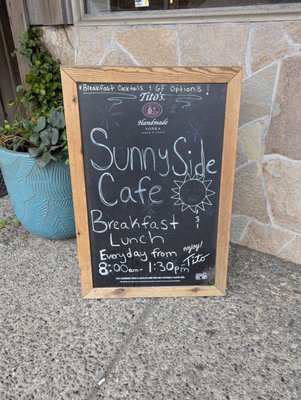 *Breakfast Cocktails & GF Options!
Tito's
Handmade
VODKA
Sunny Side
Cafe
Breakfast
Lunch
Everyday from
8:00am-1:30pm
enjoy!
Tito